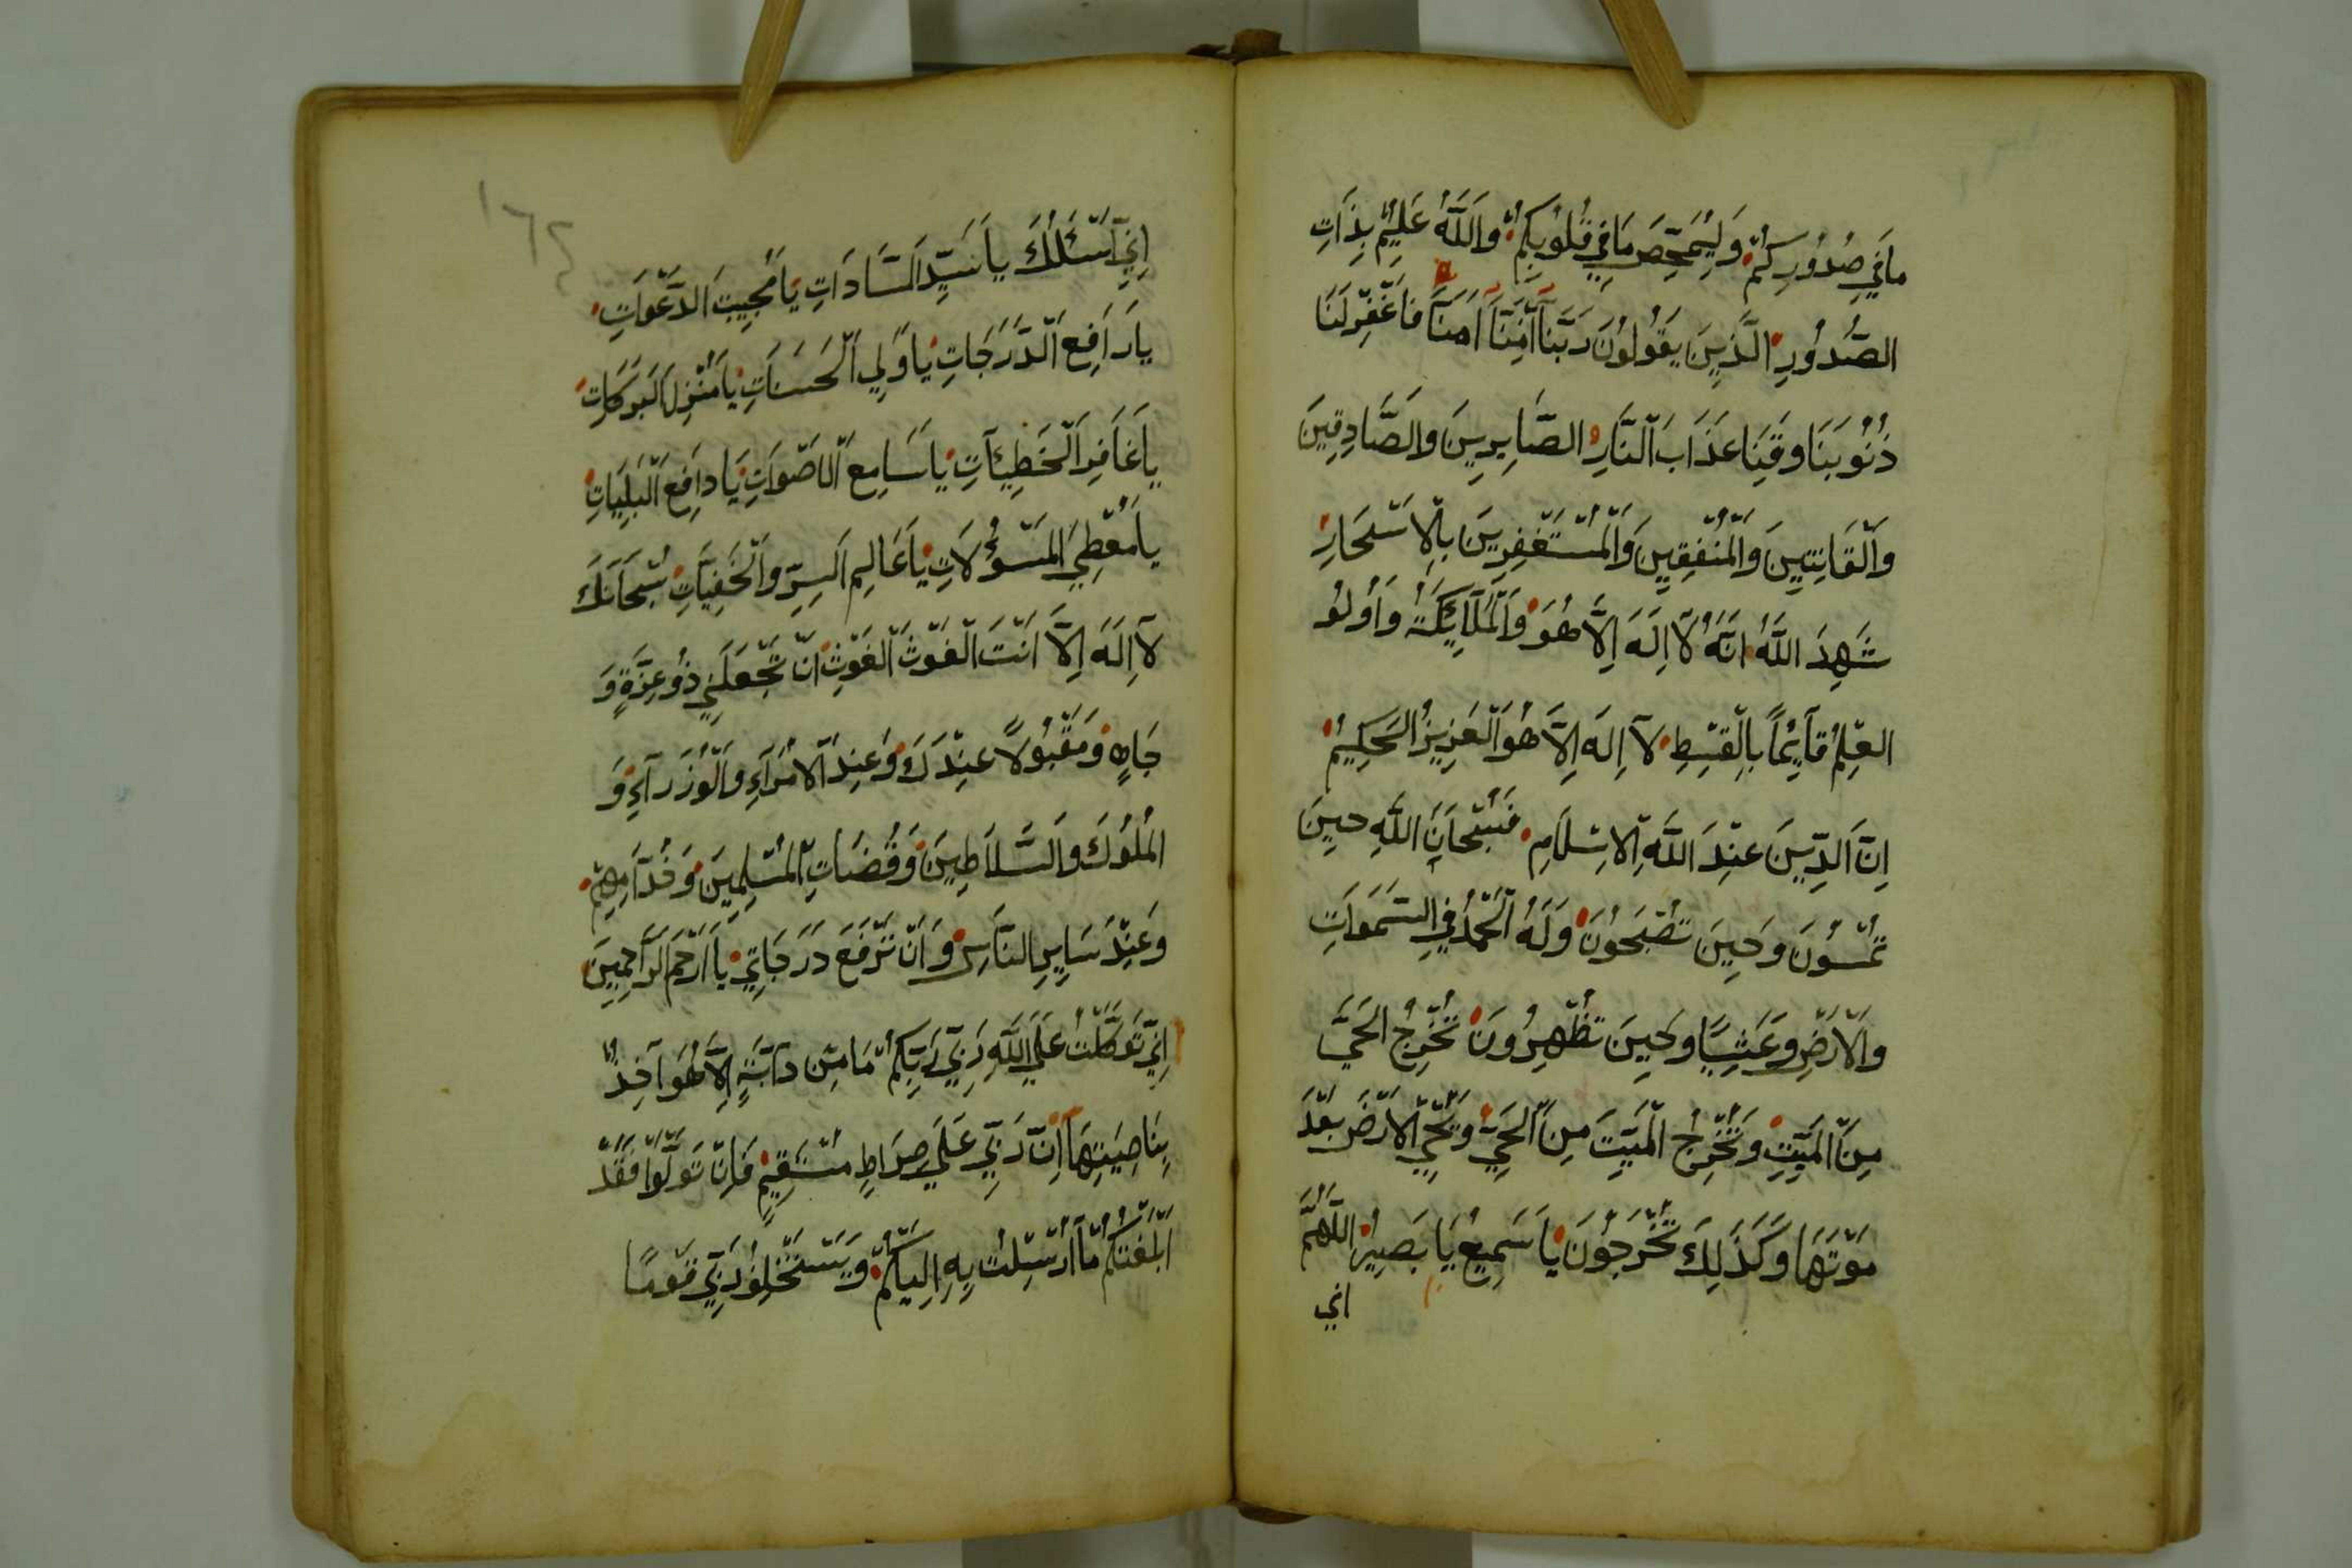 مَا فِي صُدُورِكُمْ وَلِيُمَحِّصَ مَا فِي قُلُوبِكُمْ وَاللَّهُ عَلِيمٌ بِذَاتِ
الصُّدُورِ الَّذِينَ يَقُولُونَ رَبَّنَا اِنَّنَا اَمَنَّا فَاغْفِرْ لَنَا
ذُنُوبَنَا وَقِنَا عَذَابَ النَّارِ الصَّابِرِينَ وَالصَّادِقِينَ
وَالْقَانِتِينَ وَالْمُنْفِقِينَ وَالْمُسْتَغْفِرِينَ بِالْاَسْحَارِ
شَهِدَ اللَّهُ اَنَّهُ لَآ اِلَهَ اِلَّا هُوَ وَالْمَلَآئِكَةُ وَاُولُو
الْعِلْمِ قَآئِمًا بِالْقِسْطِ لَآ اِلَهَ اِلَّا هُوَ الْعَزِيزُ الْحَكِيمُ
اِنَّ الدِّينَ عِنْدَ اللَّهِ الْاِسْلَامِ فَسُبْحَانَ اللَّهِ حِينَ
تُمْسُونَ وَحِينَ تُصْبِحُونَ وَلَهُ الْحَمْدُ فِي السَّمَوَاتِ
وَالْاَرْضِ وَعَشِيًّا وَحِينَ تُظْهِرُونَ تُخْرِجُ الْحَيَّ
مِنَ الْمَيِّتِ وَتُخْرِجُ الْمَيِّتَ مِنَ الْحَيِّ وَيُحْيِ الْاَرْضَ بَعْدَ
مَوْتِهَا وَكَذَلِكَ تُخْرَجُونَ يَا سَمِيعُ يَا بَصِيرُ اللَّهُمَّ
اني
اِنِّي اَسْئَلُكَ يَا سَيِّدَ السَّادَاتِ يَا مُجِيبَ الدَّعْوَاتِ
يَا رَافِعَ الدَّرَجَاتِ يَا وَلِي الْحَسَنَاتِ يَا مُنْزِلَ الْبَرَكَاتِ
يَا غَافِرَ الْخَطِيئَآتِ يَا سَامِعَ الْاَصْوَاتِ يَا دَافِعَ الْبَلِيَاتِ
يَا مُعْطِيَ الْمَسْؤُلَاتِ يَا عَالِمَ السِّرِّ وَالْخَفِيَّاتِ سُبْحَانَكَ
لَآ اِلَهَ اِلَّا اَنْتَ الْغَوْثَ الْغَوْثِ اَنْ تَجْعَلَنِي ذُو عِزَّةٍ وَ
جَاهٍ وَمَقْبُولًا عِنْدَكَ وَعِنْدَ الْاُمَرَآءِ وَالْوُزَرَآءِ وَ
الْمُلُوكَ وَالسَّلَاطِينَ وَقُضَاتِ الْمُسْلِمِينَ وَخُدَّامِهِمْ
وَعِنْدَ سَايِرِ النَّاسِ وَاَنْ تَرْفَعَ دَرَجَاتِي يَا اَرْحَمَ الرَّاحِمِينَ
اِنِّي تَوَكَّلْتُ عَلَى اللَّهِ رَبِّي رَبِّكُمْ مَا مِنْ دَآبَّةٍ اِلَّا هُوَ آخِذٌ
بِنَاصِيَتِهَا اِنَّ رَبِّي عَلَى صِرَاطٍ مُسْتَقِيمٍ فَاِنْ تَوَلَّوْا فَقَدْ
اَبْلَغْتُكُمْ مَآ اُرْسِلْتُ بِهِ اِلَيْكُمْ وَيَسْتَخْلِفُ رَبِّي قَوْمًا